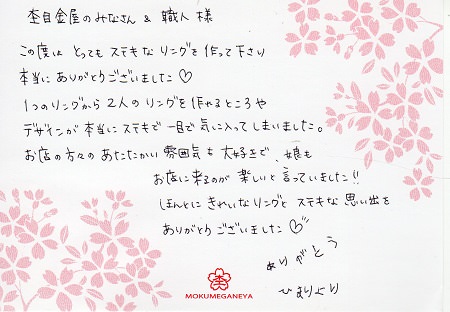 杢目金屋のみなさん & 職人 様
この度は とっても ステキな リングを 作って下さり
本当に ありがとうございました♡
1つのリングから 2人の リングを 作れるところや
デザインが 本当に ステキで 一目で 気に入って しまいました。
お店の 方々の あたたかい 雰囲気も 大好きで、娘も
お店に 来るのが 楽しいと 言っていました!!
ほんとに きれいなリングと ステキな 思い出を
ありがとう ございました♡
ありがとう
ひまりより
MOKUMEGANEYA